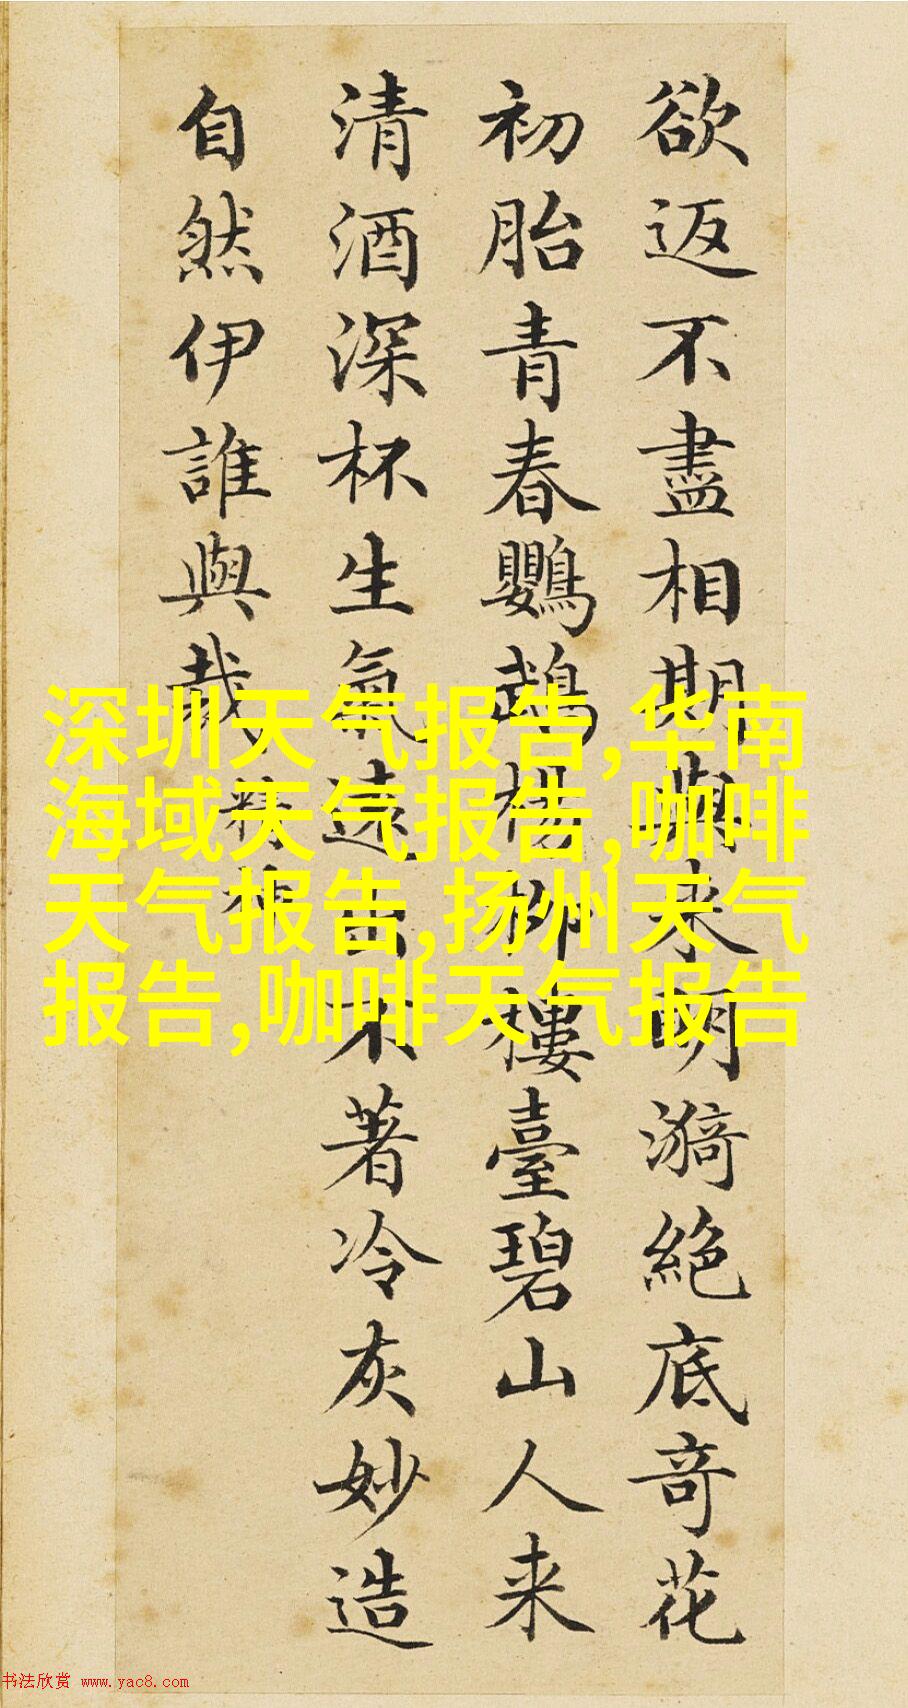 欲返不盡相期與来明漪絕底竒花
初胎青春鸚鵡楊柳樓臺碧山人来
清酒深杯生氣遠出不著冷灰妙造
自然伊誰與裁
精神
深圳天气报告,华南
海域天气报告,咖啡
天气报告,扬州天气
报告,咖啡天气报告
书法欣赏 www.yac8.com